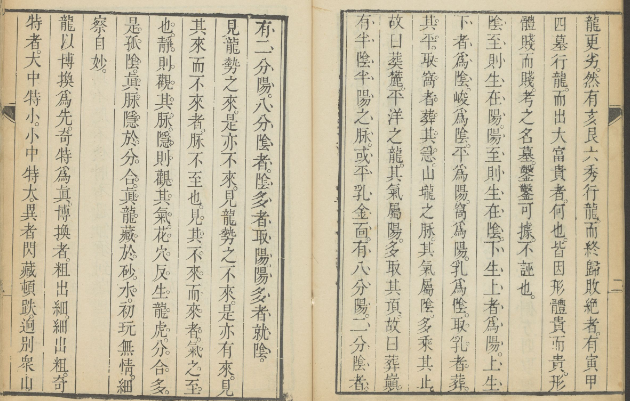 龍更劣然有亥艮六秀行龍而終歸敗絕者有寅甲
四墓行龍而出大富貴者何也皆因形體貴而貴形
體賤而賤考之名墓鑿鑿可據不誣也
陰至則生在陽陽至則生在陰下生上者爲陽上生
下者爲陰峻爲陰平爲陽窩爲陽乳爲陰取乳者葬
其平取窩者葬其急山壠之脉其氣屬陰多乘其止
故曰葬麓平洋之龍其氣屬陽多取其頂故曰葬巔
有半陰半陽之脉或平乳金面有八分陽二分陰者
有二分陽八分陰者陰多者取陽陽多者就陰
見龍勢之來是亦不來見龍勢之不來是亦有來見
其來而不來者脉不至也見其不來而來者氣之至
也靜則觀其脉隱則觀其氣花穴反生龍虎分合多
是孤陰真脉隱於分合真龍藏於砂水初玩無情細
察自妙
龍以博換爲先奇特爲真博換者粗出細細出粗奇
特者大中特小小中特太異者閃藏頓跌逈別衆山